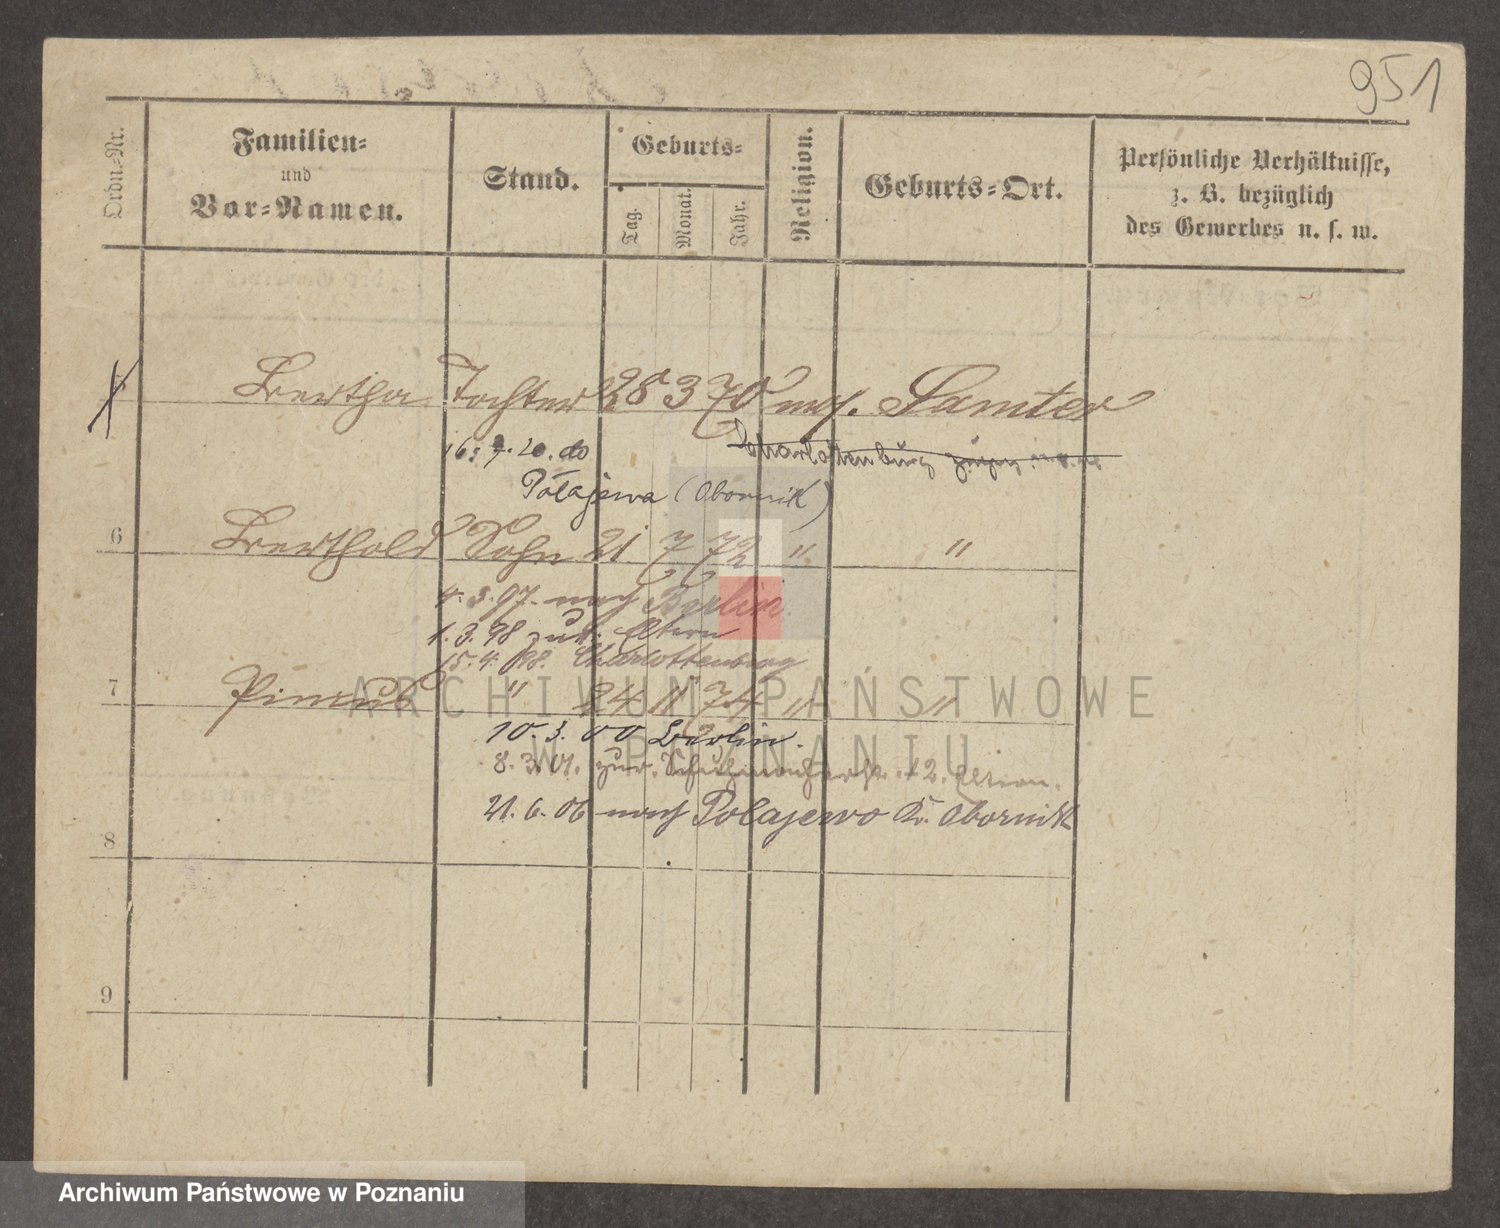 951
Ordn.-Nr.
Familien-
und
Vor-Namen.
Stand.
Geburts-
Tag.
Monat.
Jahr.
Religion.
Geburts-Ort.
Persönliche Verhältnisse,
z. B. bezüglich
des Gewerbes u. s. w.
Bertha Tochter 28 3 70 mos. Samter
16. 9. 20. do Charlottenburg
Polajewa (Obornik)
6 Berthold Sohn 21 7 72 " "
4. 3. 97. nach Berlin
1. 3. 98 zur. Eltern
15. 4. 98. Charlottenburg
7 Pincus " 24 11 74 " "
10. 3. 00 Berlin.
8. 3. 01. zur. 12. Eltern.
21. 6. 06 nach Polajewo Kr. Obornik
8
9
ARCHIWUM PAŃSTWOWE
W POZNANIU
Archiwum Państwowe w Poznaniu